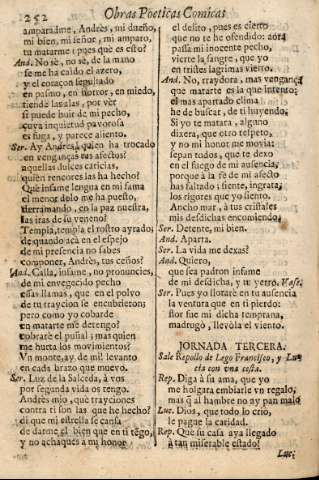 252
Obras Poeticas Comicas
amparadme, Andrès, mi dueño,
mi bien, mi señor, mi amparo,
tu matarme? pues què es esto?
And. No sè, no sè, de la mano
se me ha caido el azero,
y el coraçon sepultado
en pasmo, en horror, en miedo,
tiende las alas, por vèr
si puede huir de mi pecho,
cuya inquietud pavorosa
es fuga, y parece aliento.
Ser. Ay Andres, quien ha trocado
en venganças tus afectos?
aquellas dulces caricias,
quien rencores las ha hecho?
Què infame lengua en mi fama
el menor delo me ha puesto,
derramando, en la paz nuestra,
las iras de su veneno?
Templa, templa el rostro ayrado;
de quando acà en el espejo
de mi presencia no sabes
componer, Andrès, tus ceños?
And. Calla, infame, no pronuncies,
de mi envegecido pecho
essas llamas, que en el polvo
de tu traycion se encubrieron;
pero como yo cobarde
en matarte me detengo?
cobrarè el puñal; mas quien
me hurta los movimientos?
Un monte, ay de mi! levanto
en cada brazo que muevo.
Ser. Luz de la Salceda, à vos
por segunda vida os tengo.
Andrès mio, què trayciones
contra ti son las que he hecho?
di que mi estrella se cansa
de darme el bien que en ti tẽgo,
y no achaques à mi honor
el delito, pues es cierto
que no te he ofendido: aora
passa mi inocente pecho,
vierte la sangre, que yo
en tristes lagrimas vierto.
And. No, traydora, mas vengança
que matarte es la que intento;
el mas apartado clima
he de buscar, de ti huyendo.
Si yo te matara, alguno
dixera, que otro respeto,
y no mi honor me movia:
sepan todos, que te dexo
en el fuego de mi ausencia,
porque à la fè de mi afecto
has faltado; siente, ingrata,
los rigores que yo siento.
Ancho mar, à tus cristales
mis desdichas encomiendo.
Ser. Detente, mi bien.
And. Aparta.
Ser. La vida me dexas?
And. Quiero,
que sea padron infame
de mi desdicha, y tu yerro. Vase.
Ser. Pues yo llorarè en tu ausencia
la ventura que en ti pierdo:
flor fue mi dicha temprana,
madrugò, llevòla el viento.
JORNADA TERCERA.
Sale Repollo de Lego Francisco, y Lu-
cia con vna cesta.
Rep. Diga à su ama, que yo
me holgara embiarle vn regalo,
mas q̃ al hambre no ay pan malo
Luc. Dios, que todo lo crio,
le pague la caridad.
Rep. Què su casa aya llegado
à tan miserable estado!
Luc: